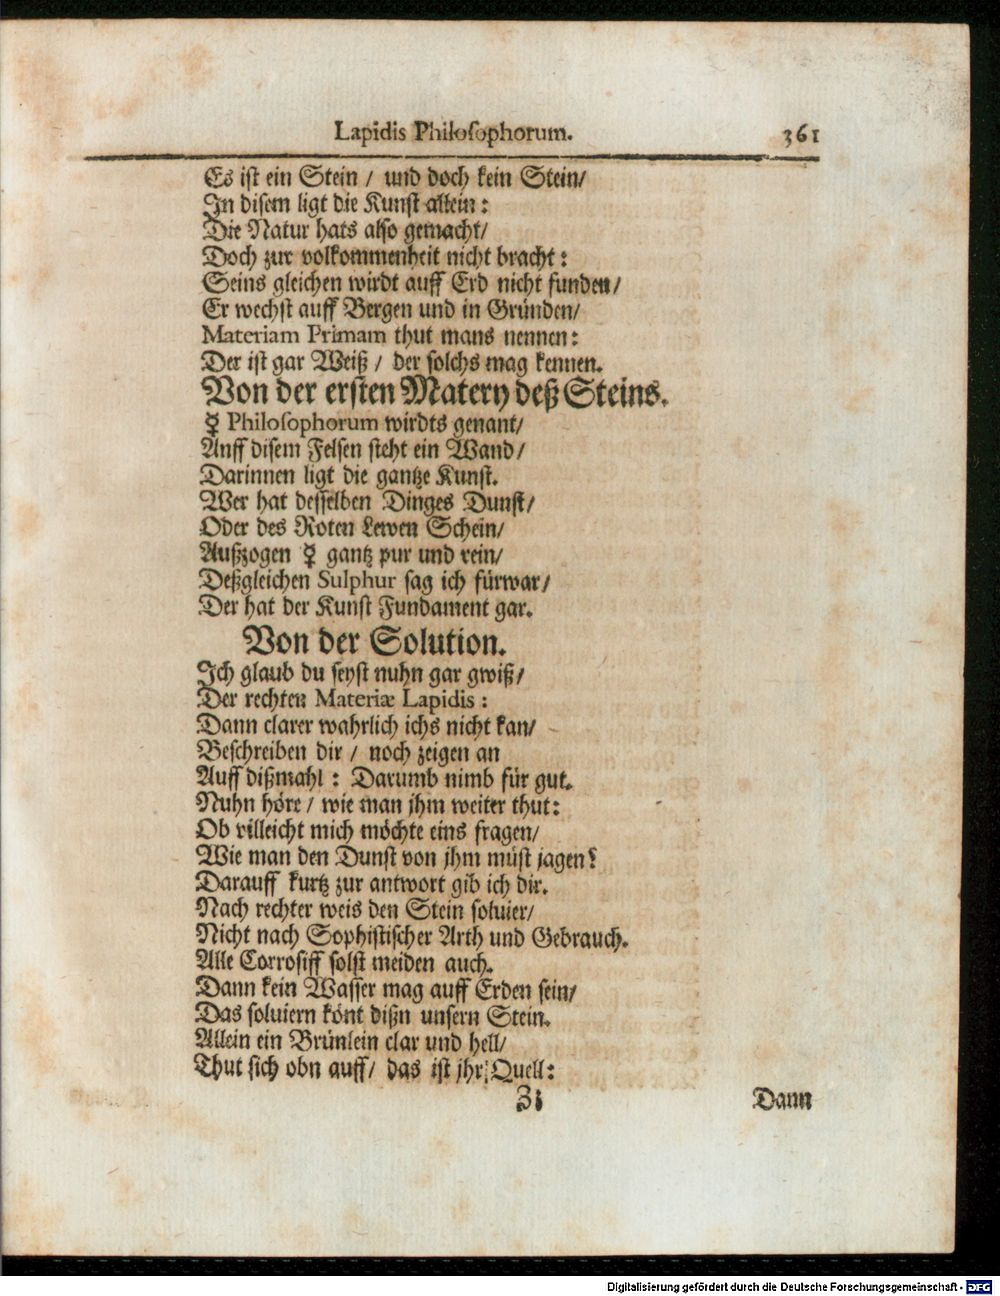 Lapidis Philosophorum. 361
Es ist ein Stein / und doch kein Stein/
In disem ligt die Kunst allein:
Die Natur hats also gemacht/
Doch zur volkommenheit nicht bracht:
Seins gleichen wirdt auff Erd nicht funden/
Er wechst auff Bergen und in Gründen/
Materiam Primam thut mans nennen:
Der ist gar Weiß / der solchs mag kennen.
Von der ersten Matery deß Steins.
☿ Philosophorum wirdts genant/
Auff disem Felsen steht ein Wand/
Darinnen ligt die gantze Kunst.
Wer hat desselben Dinges Dunst/
Oder des Roten Lewen Schein/
Außzogen ☿ gantz pur und rein/
Deßgleichen Sulphur sag ich fürwar/
Der hat der Kunst Fundament gar.
Von der Solution.
Ich glaub du seyst nuhn gar gwiß/
Der rechten Materiæ Lapidis:
Dann clarer wahrlich ichs nicht kan/
Beschreiben dir / noch zeigen an
Auff dißmahl: Darumb nimb für gut.
Nuhn höre / wie man jhm weiter thut:
Ob villeicht mich möchte eins fragen/
Wie man den Dunst von jhm müst jagen?
Darauff kurtz zur antwort gib ich dir.
Nach rechter weis den Stein soluier/
Nicht nach Sophistischer Arth und Gebrauch.
Alle Corrosiff solst meiden auch.
Dann kein Wasser mag auff Erden sein/
Das soluiern könt dißn unsern Stein.
Allein ein Brünlein clar und hell/
Thut sich obn auff/ das ist jhr Quell:
Zz Dann
Digitalisierung gefördert durch die Deutsche Forschungsgemeinschaft - DFG